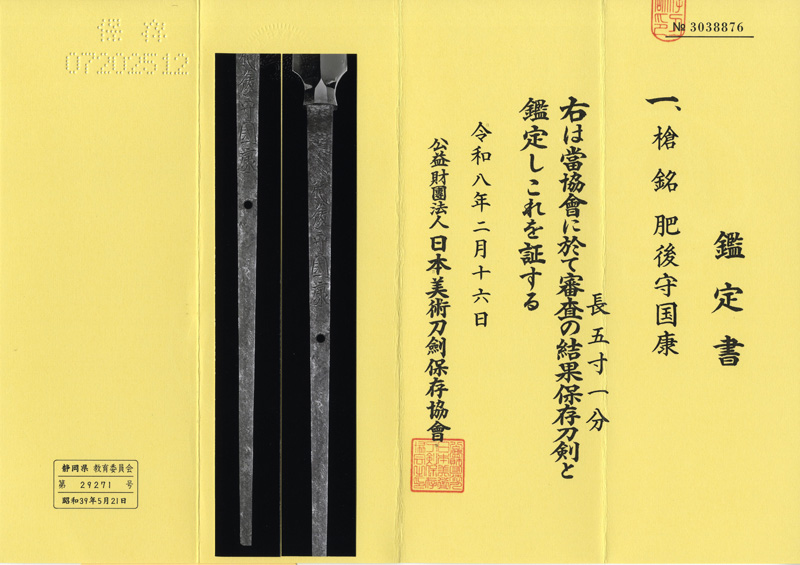 № 3038876
鑑定書
一、槍 銘 肥後守国康
長 五寸一分
右は當協會に於て審査の結果保存刀剣と
鑑定しこれを証する
令和八年二月十六日
公益財團法人 日本美術刀劍保存協會
保存
07202512
静岡県 教育委員会
第 29271 号
昭和39年5月21日